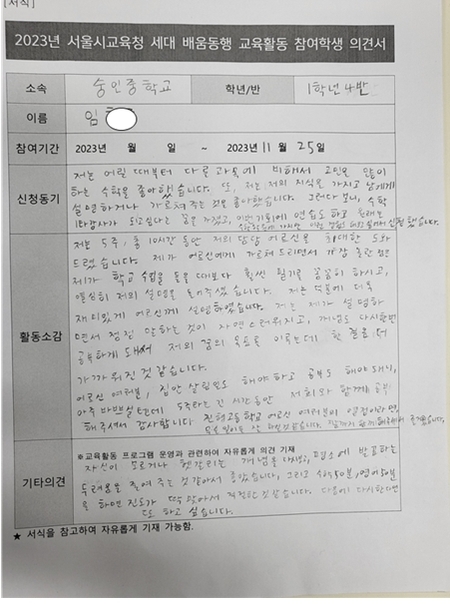 [서식]
2023년 서울시교육청 세대 배움동행 교육활동 참여학생 의견서
소속 숭인중학교 학년/반 1학년 4반
이름 임
참여기간 2023년 월 일 ~ 2023년 11월 25일
신청동기
저는 어린 때부터 다른 과목에 비해서 고민을 많이
하는 수학을 좋아했습니다. 또, 저는 저의 지식을 가지고 남에게
설명하거나 가르쳐 주는 것을 좋아했습니다. 그러다 보니, 수학
강사가 되고싶다는 꿈을 가졌고, 이번 기회에 연습도 하고
신청했습니다.
활동소감
저는 5주, 총 10시간 동안 저의 담당 어르신을 최대한 도와
드렸습니다. 제가 어르신에게 가르쳐드리면서 가장 놀란 점은
제가 학교 수업을 들을 때보다 훨씬 필기를 꼼꼼히 하시고,
열심히 저의 설명을 들어주셨습니다. 저는 덕분에 더욱
재미있게 어르신께 설명하였습니다. 저는 제가 설명하
면서 점점 말하는 것이 자연스러워지고, 개념도 다시한번
공부하게 돼서 저의 꿈의 목표로 이루는데 한 걸음 더
가까워진 것 같습니다.
어르신 여러분, 집안 살림도 해야하고 공부도 해야돼서,
아주 바쁘실텐데 5주라는 긴 시간동안 저희와 함께 공부
해주셔서 감사합니다. 진형고등학교 어르신 여러분의 열정이라면,
기타의견
※교육활동 프로그램 운영과 관련하여 자유롭게 의견 기재
자신이 모르거나 헷갈리는 개념을 다시한번, 평소에 반공하는
두려움을 줄여 주는 것 같아서 좋았습니다. 그리고 수학50분, 영어50분
을 하면 진도가 딱 맞아서 적절한것 같습니다. 다음에 다시한다면
또 하고 싶습니다.
★ 서식을 참고하여 자유롭게 기재 가능함.